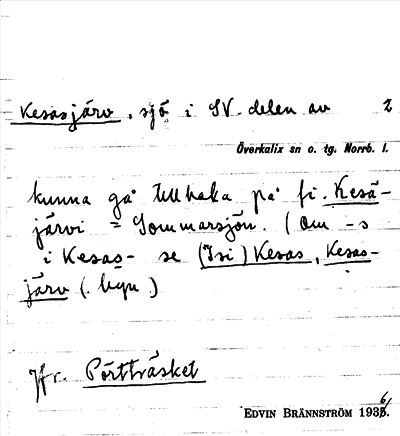 Kesasjärv, sjö i SV. delen av 2
Överkalix sn o. tg. Norrb. l.
kunna gå tillbaka på fi. Kesä-
järvi = Sommarsjön. (Om -s
i Kesas- se (Isi) Kesas, Kesas-
järv (. byn)
Jfr. Pörtträsket
EDVIN BRÄNNSTRÖM 1936.